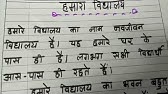 हमारा विद्यालय
हमारे विद्यालय का नाम नवजीवन
विद्यालय है। यह हमारे घर के
पास ही है। लगभग सभी विद्यार्थी
आस-पास ही रहते हैं।
हमारे विद्यालय का भवन बहुत